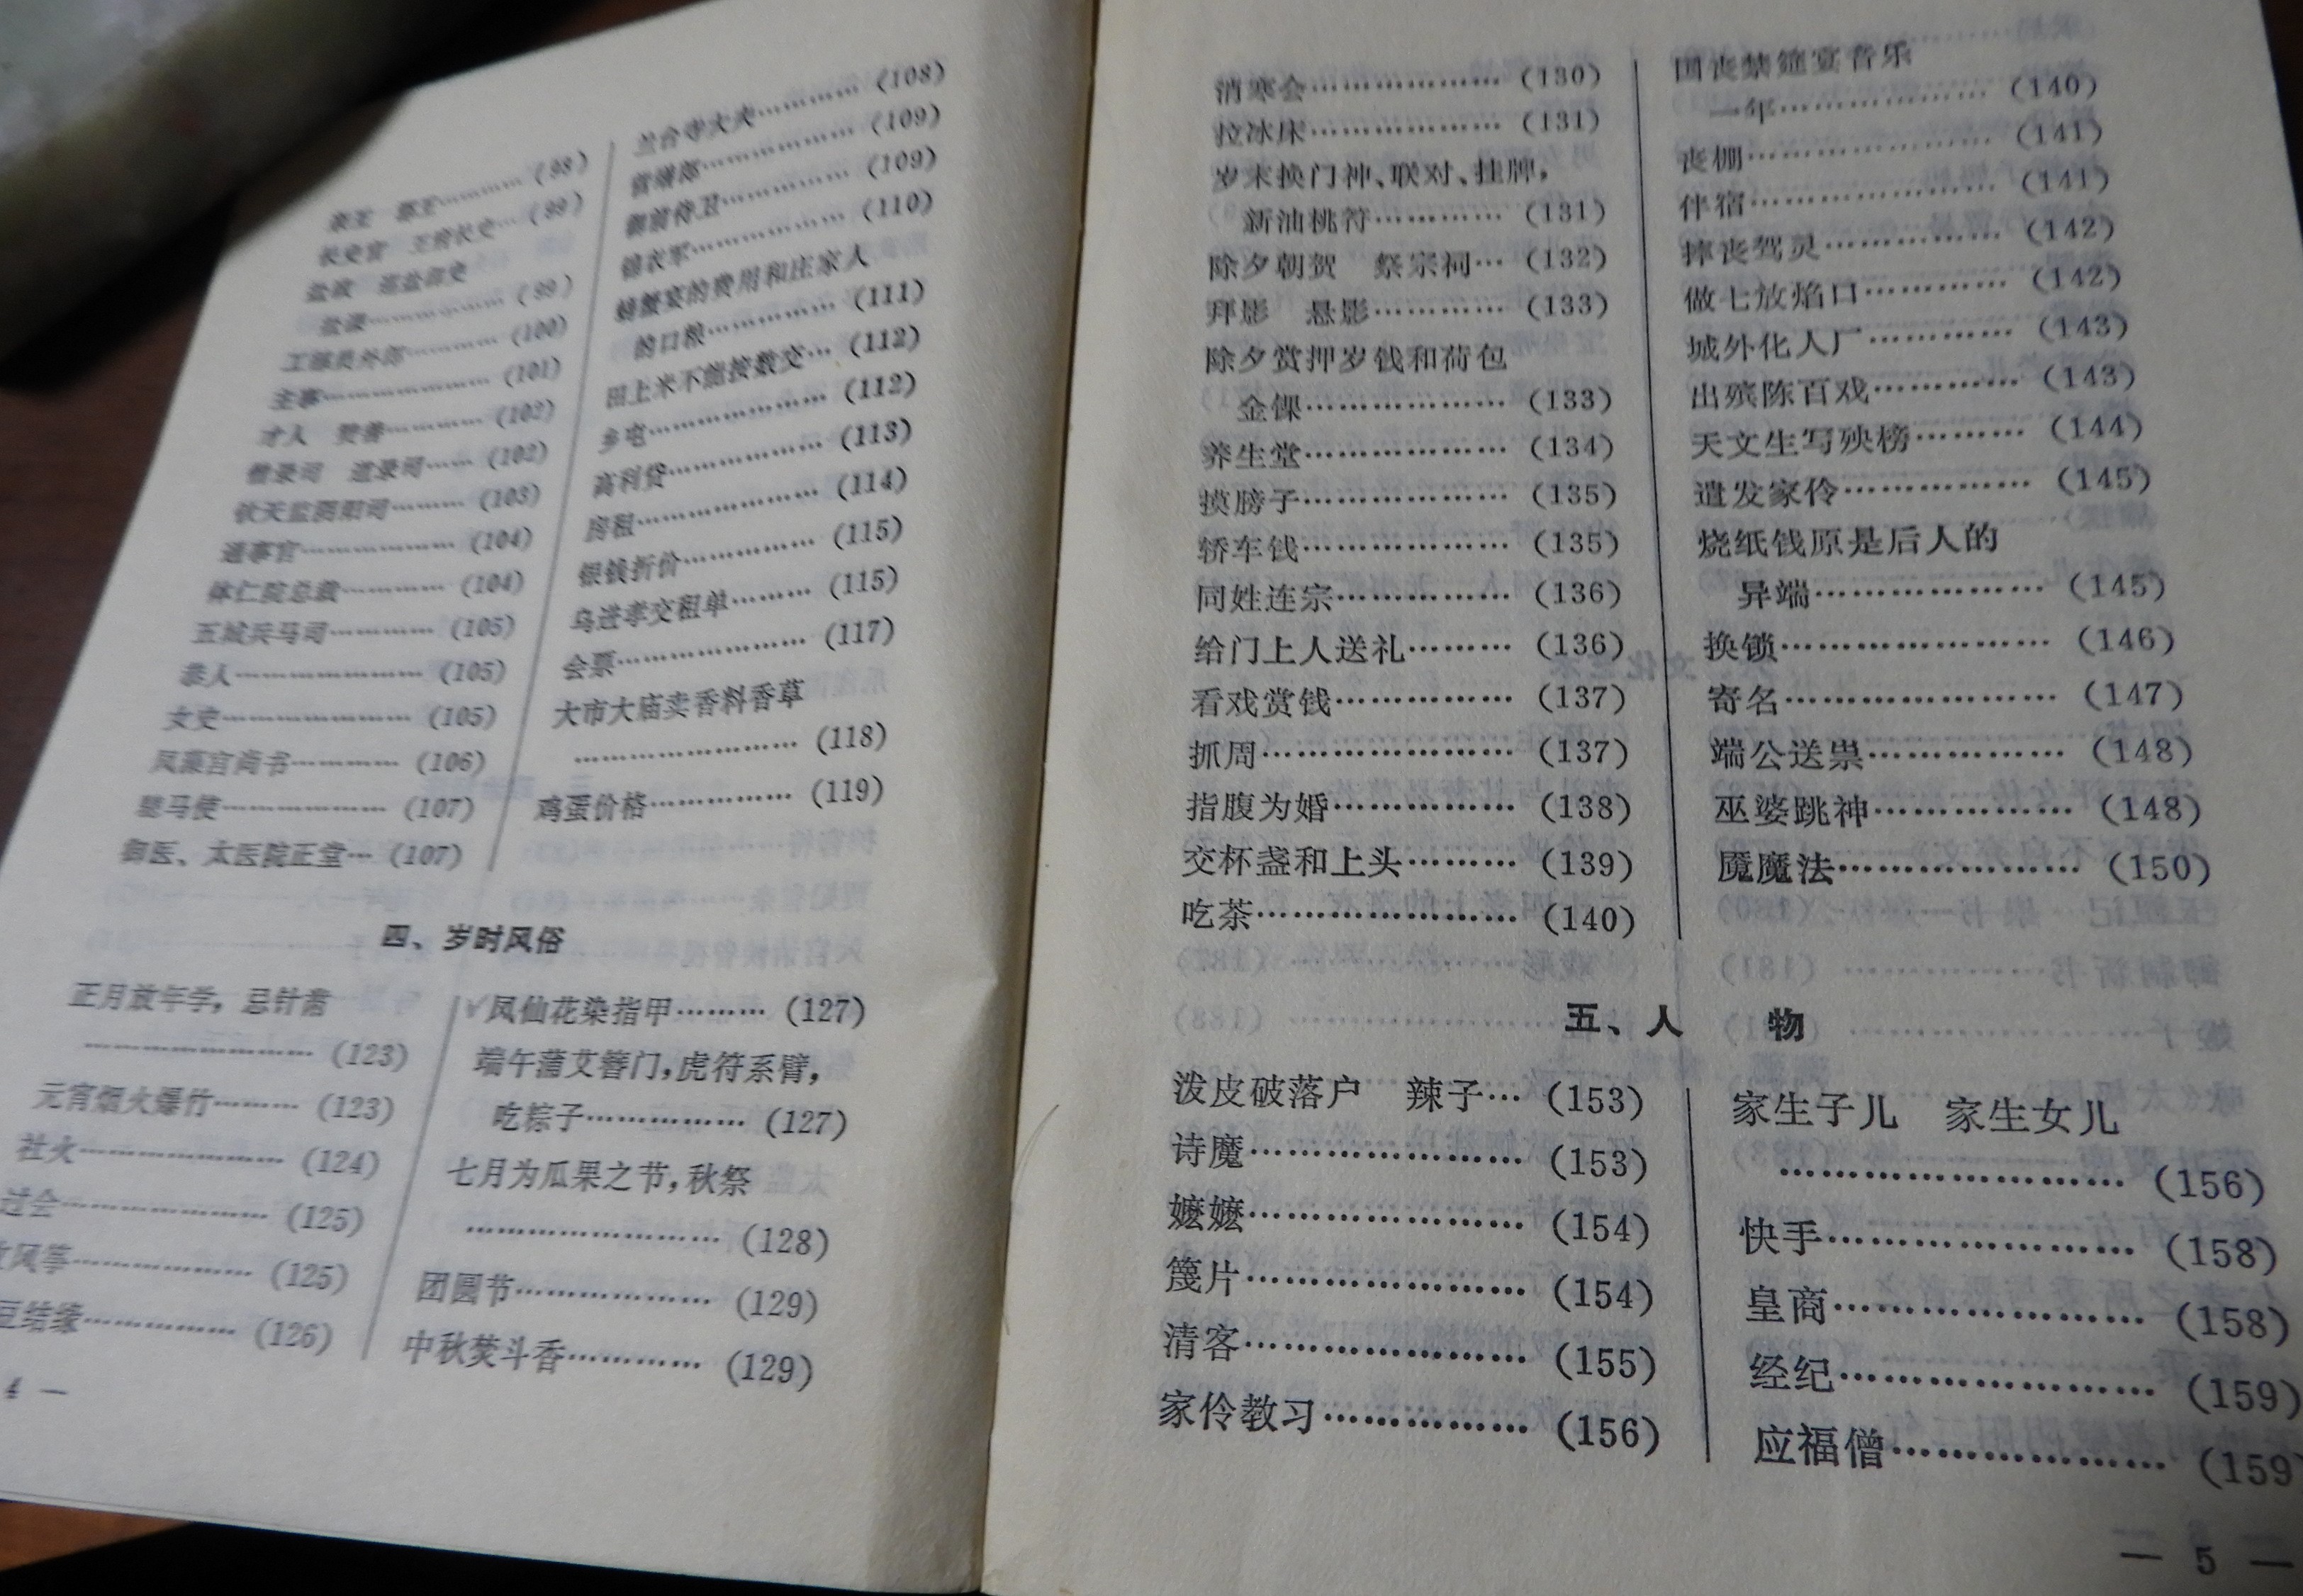 亲王　郡王…………(98)
长史官　王府长史…(99)
盐政　巡盐御史
盐课………………(99)
工部员外郎…………(100)
主事…………………(101)
才人　赞善…………(102)
僧录司　道录司……(102)
钦天监阴阳司………(103)
通事官………………(104)
体仁院总裁…………(104)
五城兵马司…………(105)
恭人…………………(105)
女史…………………(105)
凤藻宫尚书…………(106)
驸马使………………(107)
御医、太医院正堂…(107)
兰台寺大夫…………(108)
(109)
御前侍卫……………(109)
锦衣军………………(110)
螃蟹宴的费用和庄家人
的口粮……………(111)
田上米不能按数交…(112)
乡屯…………………(112)
高利贷………………(113)
房租…………………(114)
银钱折价……………(115)
乌进孝交租单………(115)
会票…………………(117)
大市大庙卖香料香草
……………………(118)
鸡蛋价格……………(119)
四、岁时风俗
正月放年学，忌针黹
……………………(123)
元宵烟火爆竹………(123)
社火…………………(124)
过会…………………(125)
风筝………………(125)
豆结缘……………(126)
✓凤仙花染指甲………(127)
端午蒲艾簪门，虎符系臂，
吃粽子……………(127)
七月为瓜果之节，秋祭
……………………(128)
团圆节………………(129)
中秋焚斗香…………(129)
4 —
消寒会………………(130)
拉冰床………………(131)
岁末换门神、联对、挂牌，
新油桃符…………(131)
除夕朝贺　祭宗祠…(132)
拜影　悬影…………(133)
除夕赏押岁钱和荷包
金锞………………(133)
养生堂………………(134)
摸膀子………………(135)
轿车钱………………(135)
同姓连宗……………(136)
给门上人送礼………(136)
看戏赏钱……………(137)
抓周…………………(137)
指腹为婚……………(138)
交杯盏和上头………(139)
吃茶…………………(140)
国丧禁筵宴音乐
一年………………(140)
丧棚…………………(141)
伴宿…………………(141)
摔丧驾灵……………(142)
做七放焰口…………(142)
城外化人厂…………(143)
出殡陈百戏…………(143)
天文生写殃榜………(144)
遣发家伶……………(145)
烧纸钱原是后人的
异端………………(145)
换锁…………………(146)
寄名…………………(147)
端公送祟……………(148)
巫婆跳神……………(148)
魇魔法………………(150)
五、人　　物
泼皮破落户　辣子…(153)
诗魔…………………(153)
嬷嬷…………………(154)
篾片…………………(154)
清客…………………(155)
家伶教习……………(156)
家生子儿　家生女儿
……………………(156)
快手…………………(158)
皇商…………………(158)
经纪…………………(159)
应福僧………………(159
— 5 —